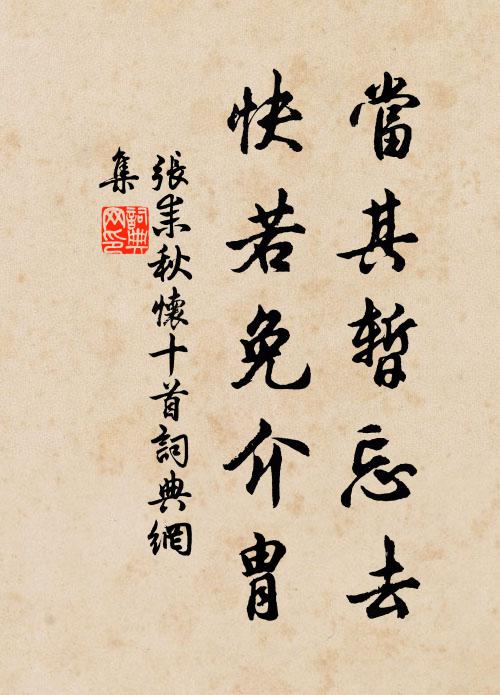 當其暫忘去
快若免介冑
張耒秋懷十首詞典網
集
詞典
网印